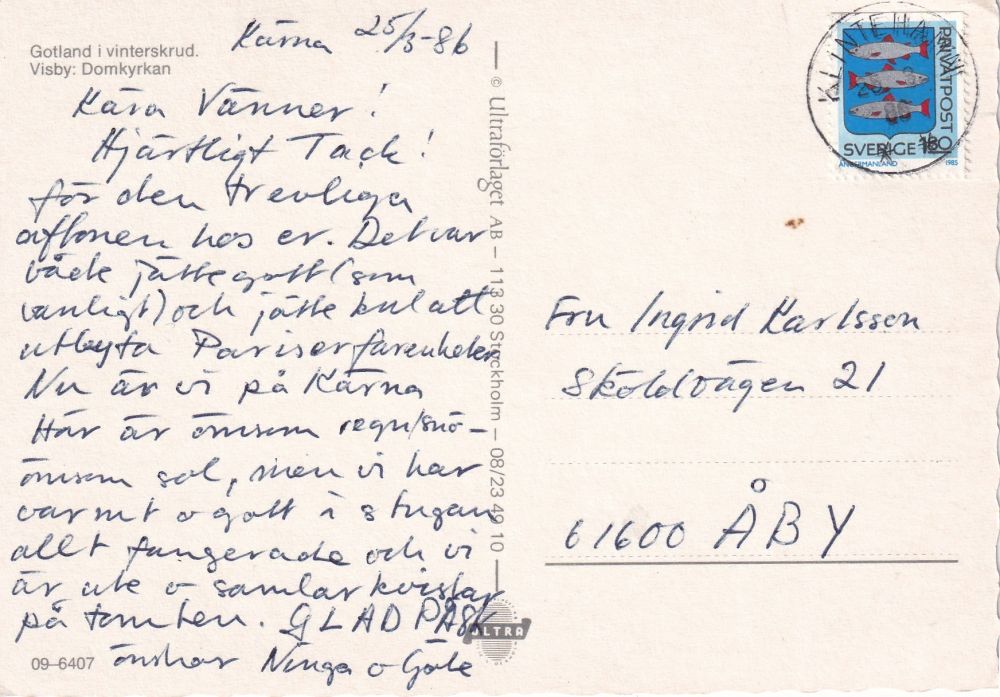 Gotland i vinterskrud.
Visby: Domkyrkan
Kärna 25/3-86
Kära Vänner!
Hjärtligt Tack!
för den trevliga
aftonen hos er. Det var
både jättegott (som
vanligt) och jätte kul att
utbyta Pariserfarenheter
Nu är vi på Kärna
Här är ömsom regn/snö-
ömsom sol, men vi har
varmt o gott i stugan
allt fungerade och vi
är ute o samlar kvistar
på tomten. GLAD PÅSK
önskar Ninga o Göte
09-6407
© Ultraförlaget AB – 113 30 Stockholm – 08/23 49 10
ULTRA
KLINTEHAMN
86
PRIVATPOST
SVERIGE 180
ÅNGERMANLAND 1985
Fru Ingrid Karlsson
Sköldvägen 21
61600 ÅBY